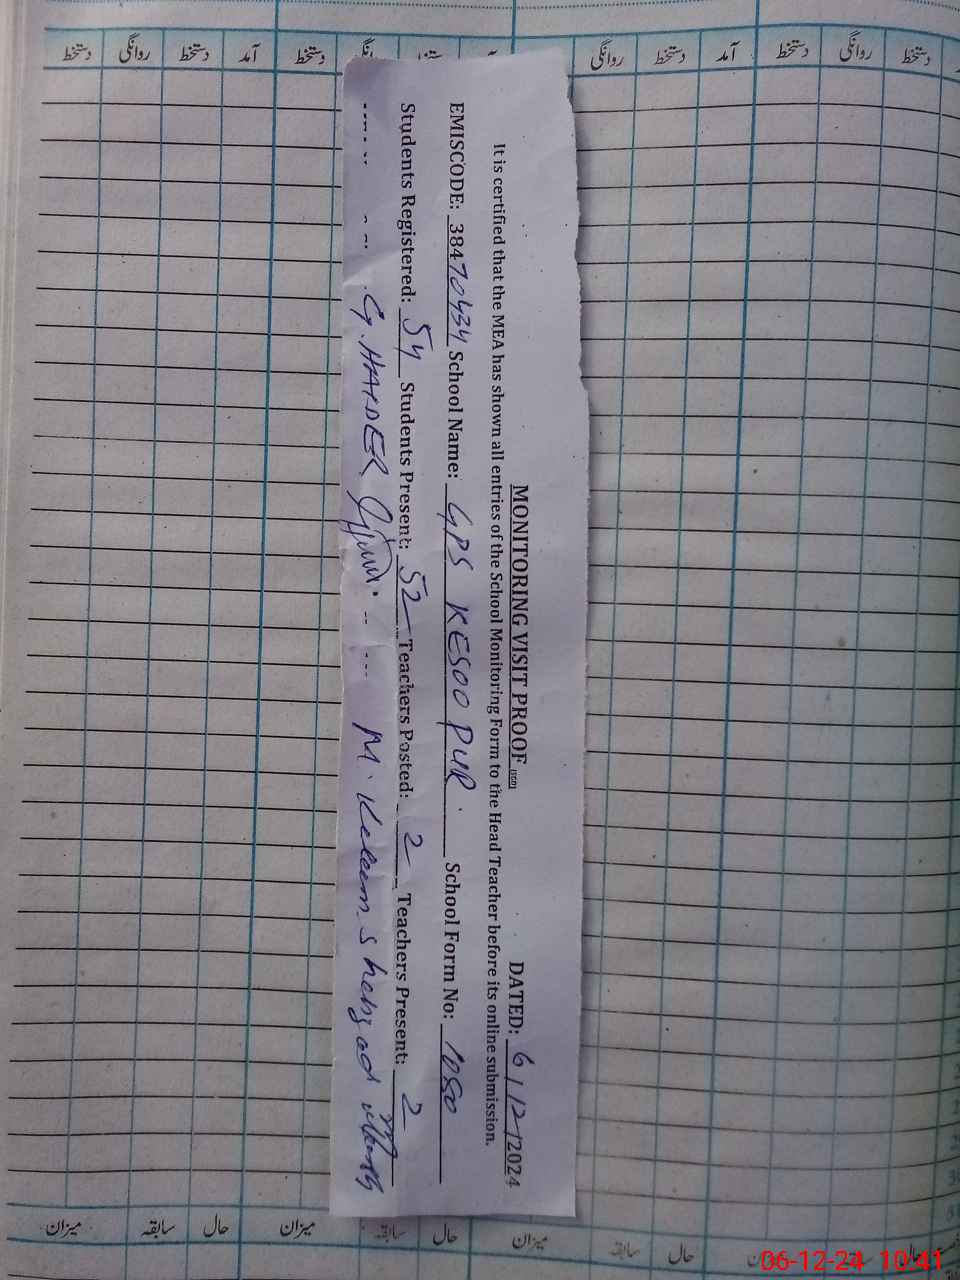 دستخط روانگی دستخط آمد دستخط روانگی دستخط آمد دستخط روانگی دستخط
MONITORING VISIT PROOF DATED: 6/12/2024
It is certified that the MEA has shown all entries of the School Monitoring Form to the Head Teacher before its online submission.
EMISCODE: 38470434 School Name: GPS KESOO PUR. School Form No: 1080
Students Registered: 54 Students Present: 52 Teachers Posted: 2 Teachers Present: 2
G. HAIDER M. Kaleem Shehzad
میزان سابقہ حال میزان سابقہ حال میزان سابقہ حال
06-12-24 10:41